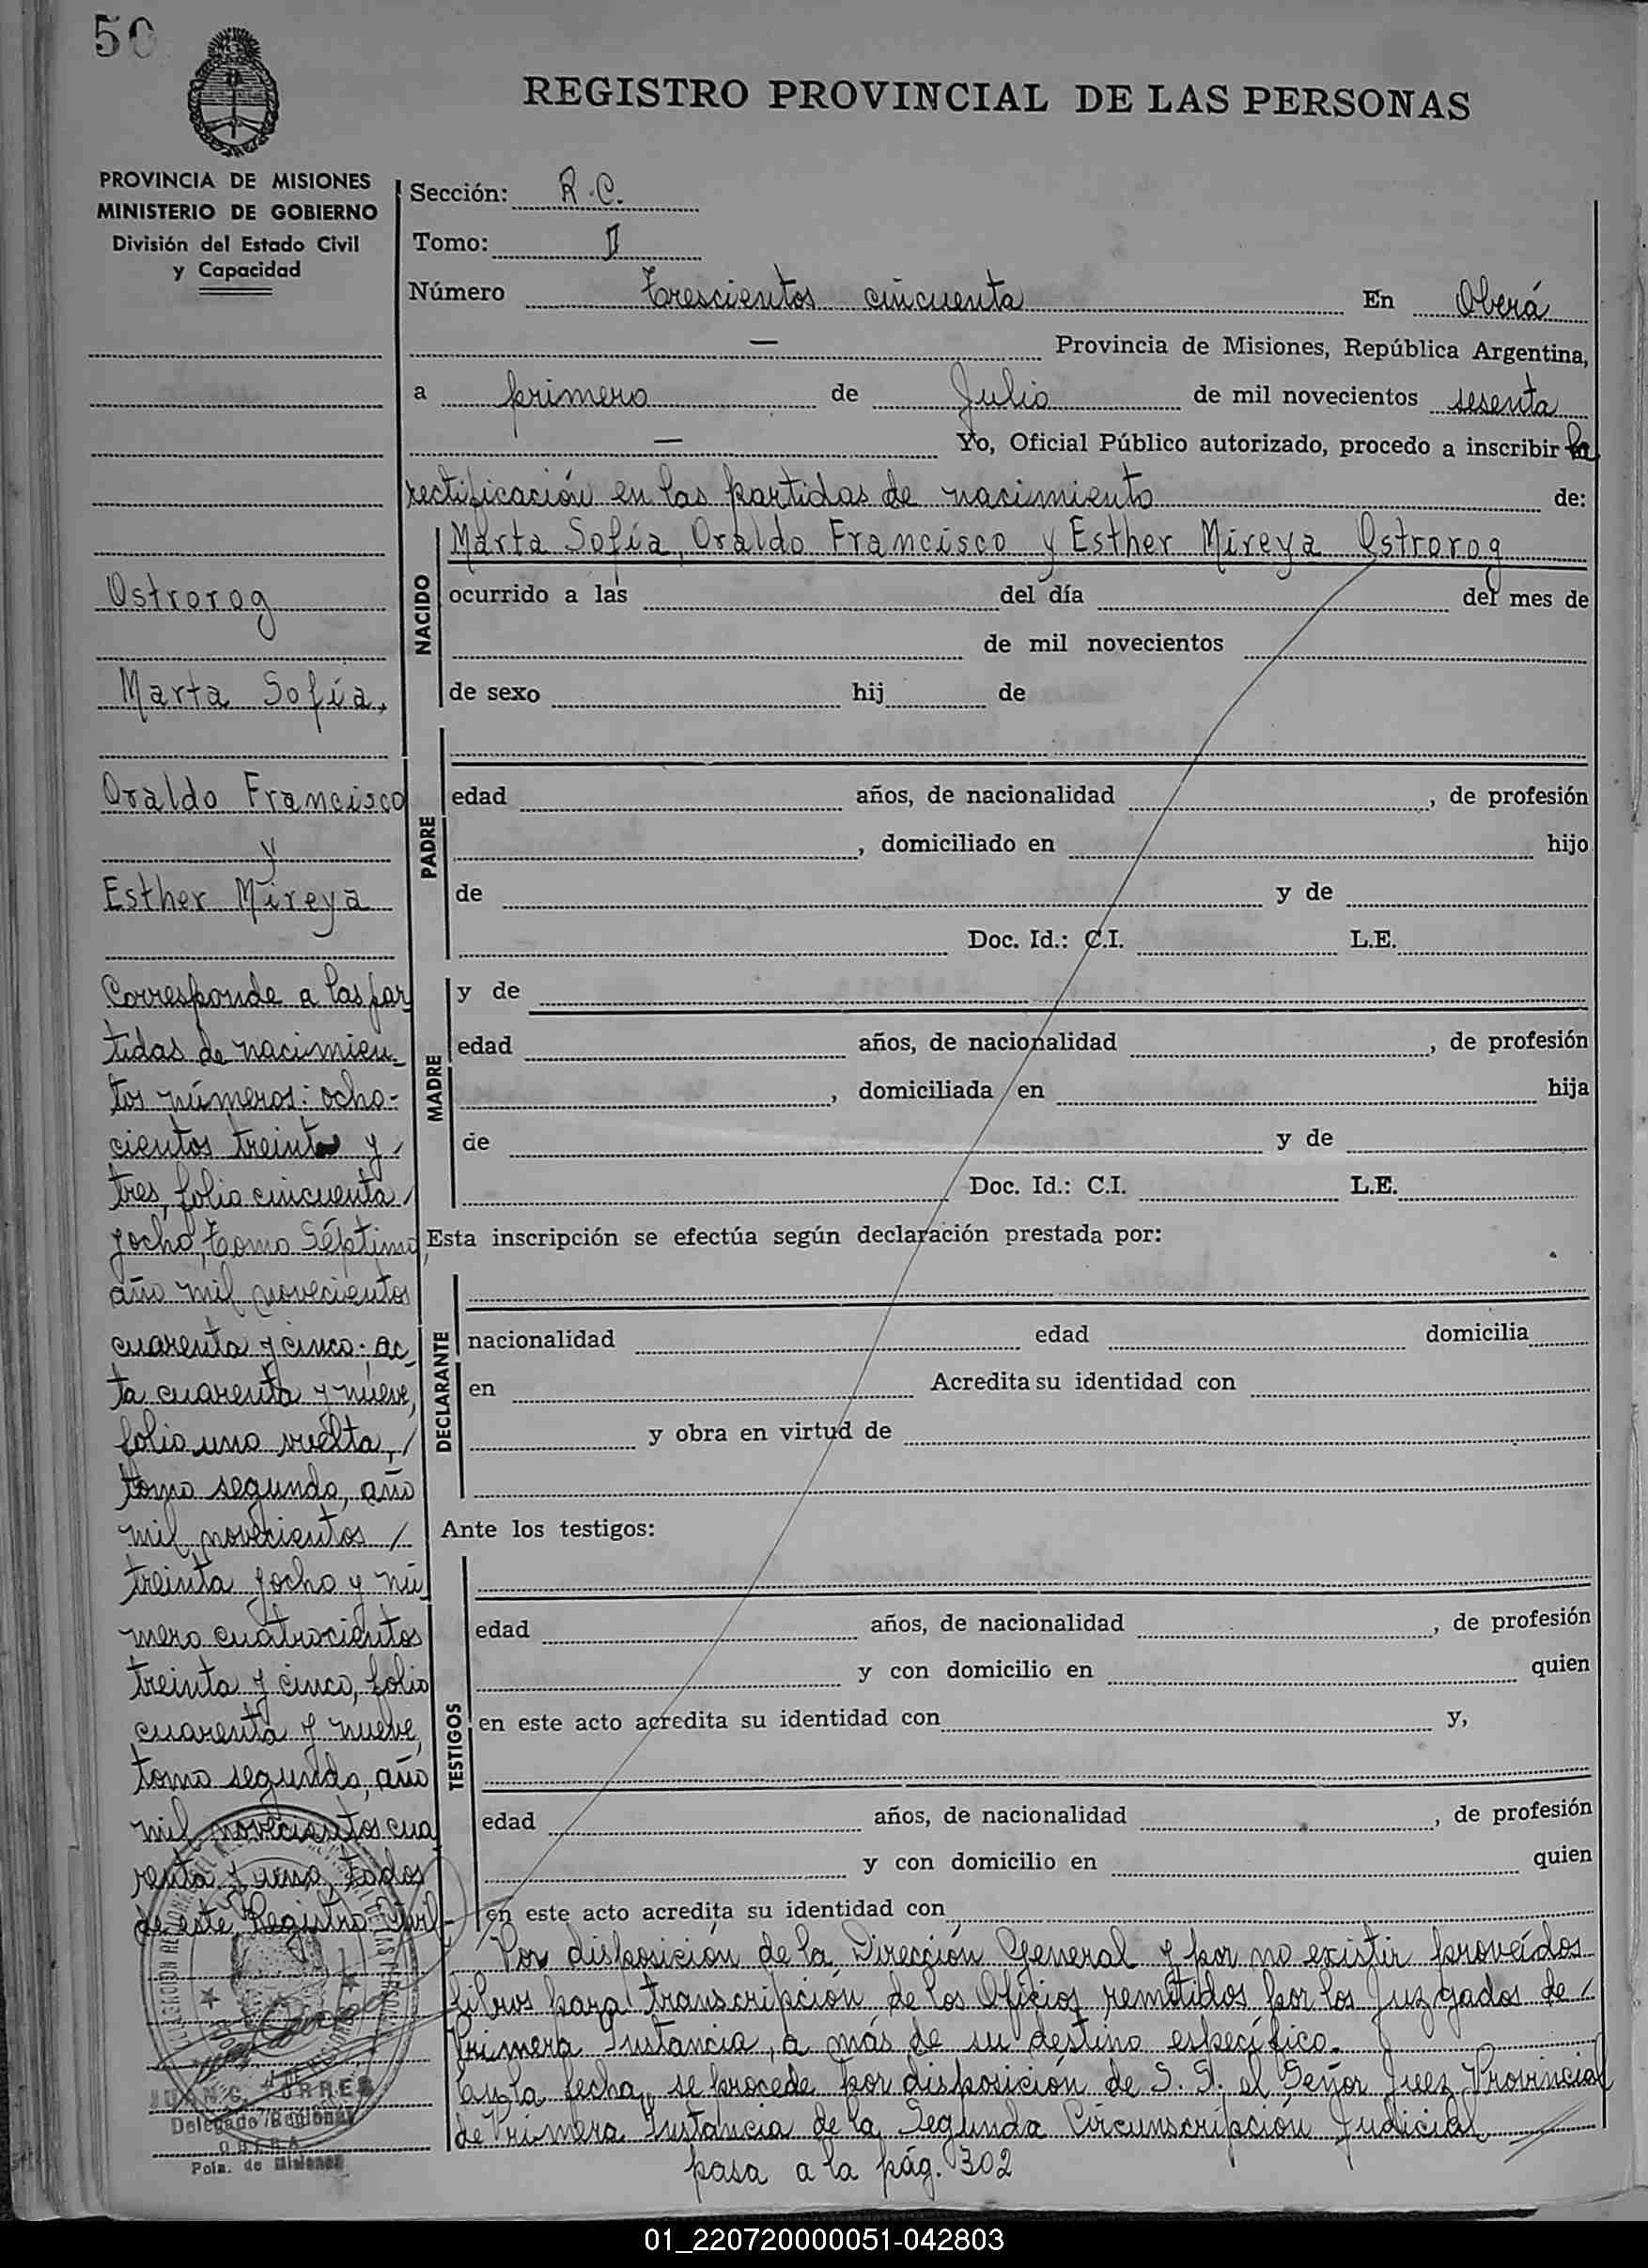 50
REGISTRO PROVINCIAL DE LAS PERSONAS
PROVINCIA DE MISIONES
MINISTERIO DE GOBIERNO
División del Estado Civil
y Capacidad
Ostrorog
Marta Sofía,
Oraldo Francisco
y
Esther Mireya
Corresponde a las par
tidas de nacimien-
tos números: ocho-
cientos treinta y /
tres, folio cincuenta /
y ocho, Tomo Séptimo
año mil novecientos
cuarenta y cinco; ac
ta cuarenta y nueve,
folio uno vuelta, /
tomo segundo, año
mil novecientos /
treinta y ocho y nú
mero cuatrocientos
treinta y cinco, folio
cuarenta y nueve,
tomo segundo, año
mil novecientos cua
renta y uno, todos
de este Registro Civil.
JUAN C. TORRES
Delegado Regional
OBERA
Pcia. de Misiones
Sección: R.C.
Tomo: II
Número Trescientos cincuenta En Oberá
— Provincia de Misiones, República Argentina,
a primero de Julio de mil novecientos sesenta
— Yo, Oficial Público autorizado, procedo a inscribir la
rectificación en las partidas de nacimiento de:
NACIDO
Marta Sofía, Oraldo Francisco y Esther Mireya Ostrorog
ocurrido a las del día del mes de
de mil novecientos
de sexo hij de
PADRE
edad años, de nacionalidad , de profesión
, domiciliado en hijo
de y de
Doc. Id.: C.I. L.E.
MADRE
y de
edad años, de nacionalidad , de profesión
, domiciliada en hija
de y de
Doc. Id.: C.I. L.E.
Esta inscripción se efectúa según declaración prestada por:
DECLARANTE
nacionalidad edad domicilia
en Acredita su identidad con
y obra en virtud de
Ante los testigos:
TESTIGOS
edad años, de nacionalidad , de profesión
y con domicilio en quien
en este acto acredita su identidad con y,
edad años, de nacionalidad , de profesión
y con domicilio en quien
en este acto acredita su identidad con
Por disposición de la Dirección General y por no existir proveídos
libros para transcripción de los Oficios remitidos por los Juzgados de /
Primera Instancia, a más de su destino específico.
En la fecha, se procede por disposición de S. S. el Señor Juez Provincial
de Primera Instancia de la Segunda Circunscripción Judicial
pasa a la pág. 302
01_220720000051-042803